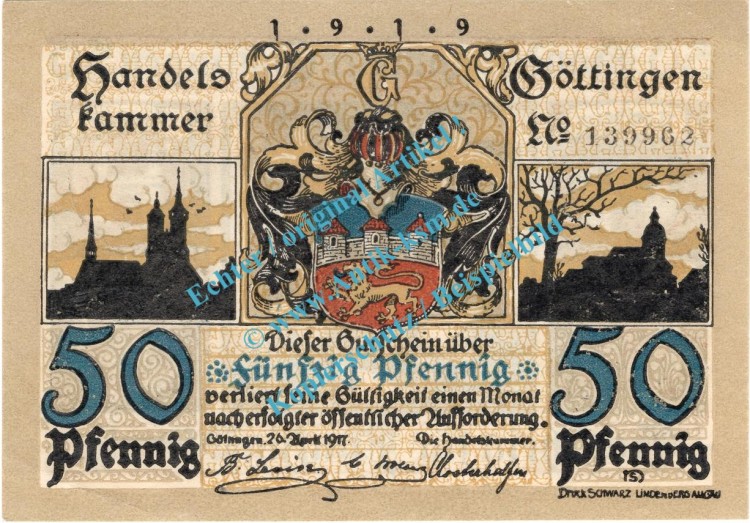 1 · 9 · 1 · 9
Handels
kammer
G
Göttingen
No 139962
Echter / original Artikel!
Kopierschutz / Beispielbild
50
Pfennig
Dieser Gutschein über
Fünfzig Pfennig
verliert seine Gültigkeit einen Monat
nach erfolgter öffentlicher Aufforderung.
Göttingen, 26. April 1917. Die Handelskammer.
50
Pfennig
(5)
DRUCK SCHWARZ LINDENBERG ALLGÄU